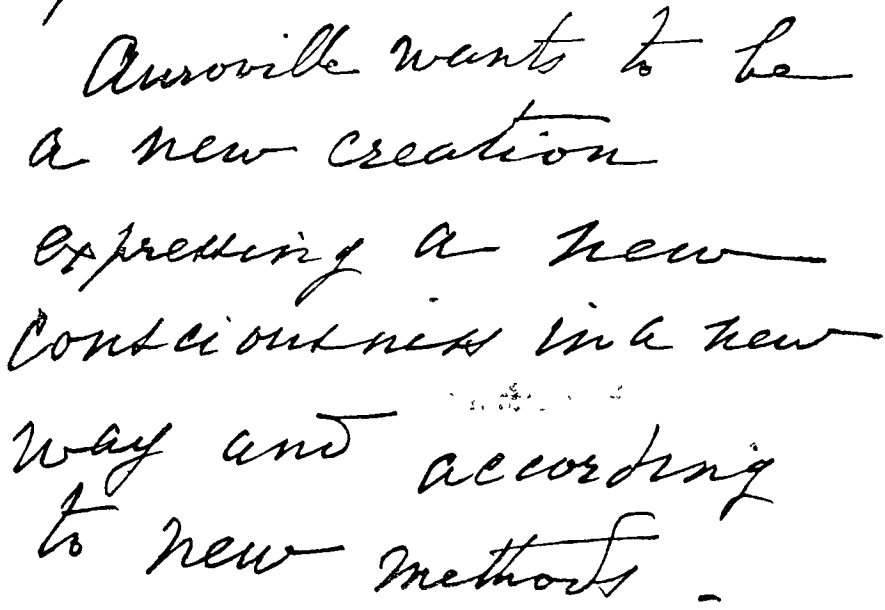 Auroville wants to be
a new creation
expressing a new
consciousness in a new
way and according
to new methods.